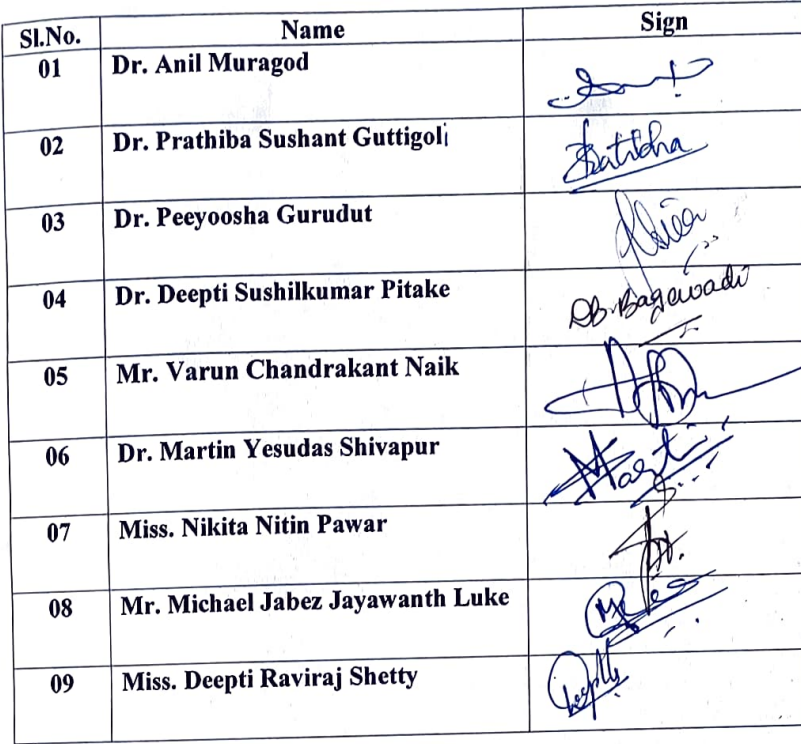 Sl.No. Name Sign
01 Dr. Anil Muragod
02 Dr. Prathiba Sushant Guttigoli Pratibha
03 Dr. Peeyoosha Gurudut
04 Dr. Deepti Sushilkumar Pitake DB. Bagewadi
05 Mr. Varun Chandrakant Naik
06 Dr. Martin Yesudas Shivapur Martin
07 Miss. Nikita Nitin Pawar
08 Mr. Michael Jabez Jayawanth Luke
09 Miss. Deepti Raviraj Shetty Deepti